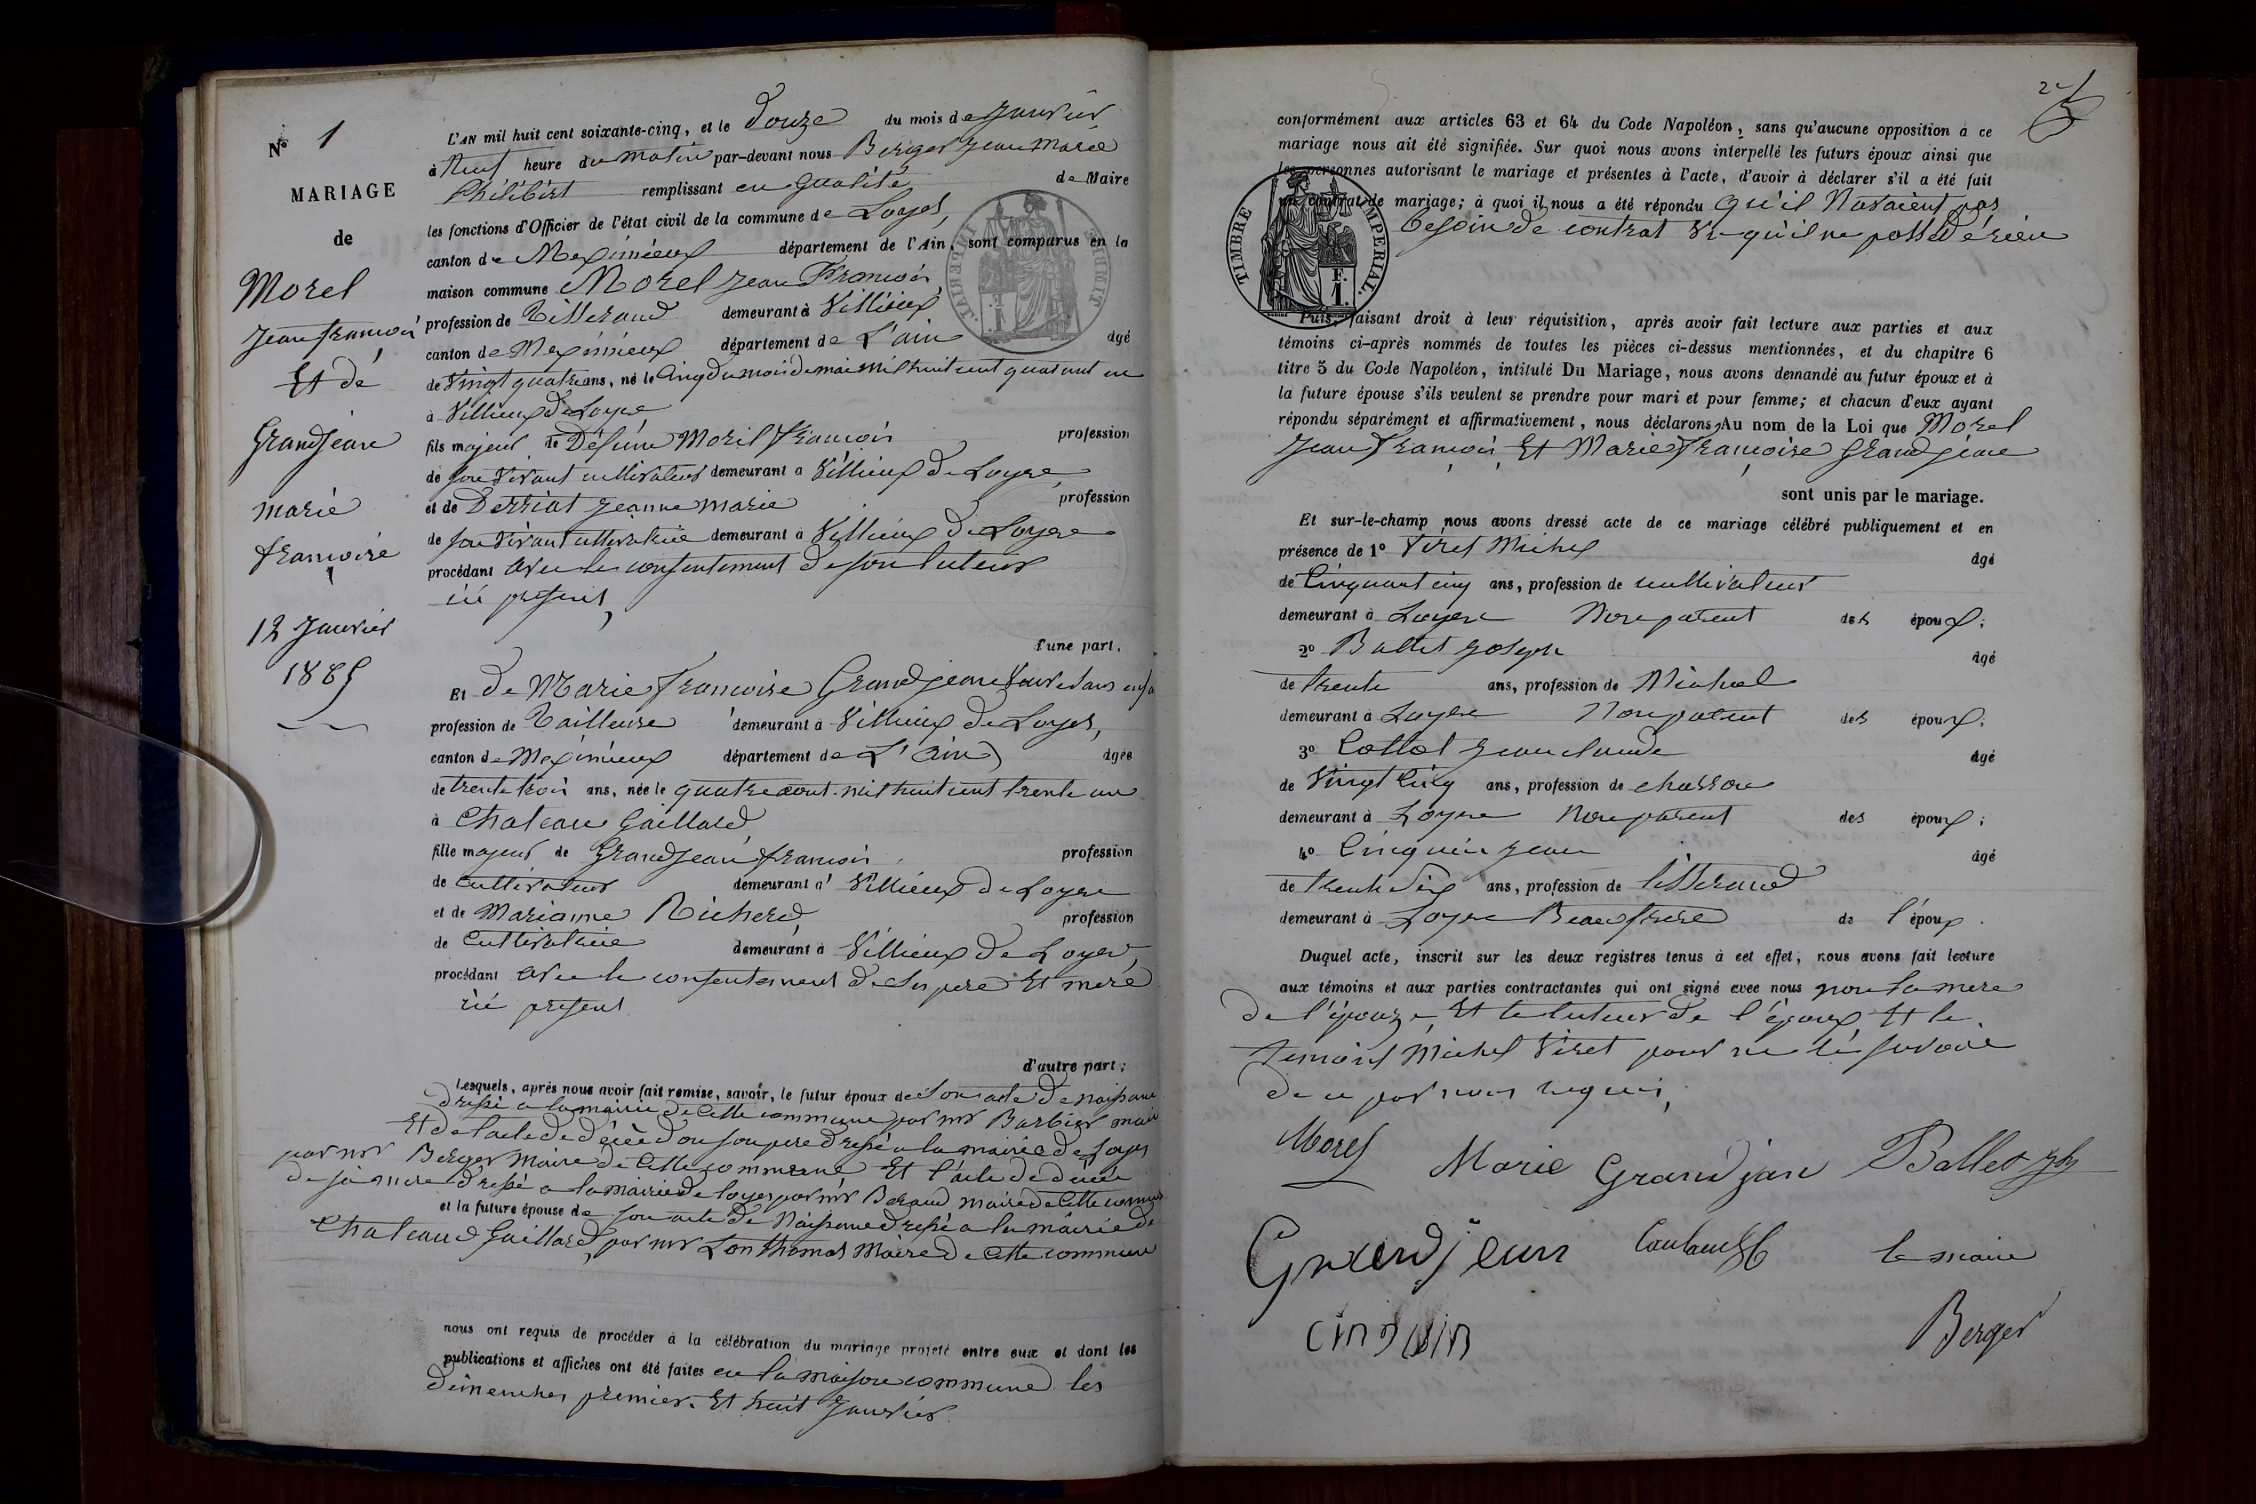 N° 1
MARIAGE
de
Morel
Jean françois
Et de
Grandjean
marie
françoise
12 Janvier
1865
L'AN mil huit cent soixante-cinq, et le Douze du mois de Janvier
à Neuf heure du matin par-devant nous Berger Jean Marie
Philibert remplissant en qualité de Maire
les fonctions d'Officier de l'état civil de la commune de Loyes,
canton de Meximieux département de l'Ain, sont comparus en la
maison commune Morel Jean François,
profession de Tisserand demeurant à Villieux
canton de Meximieux département de L'ain âgé
de Vingt quatre ans, né le Cinq du mois de mai mil huit cent quarante un
à Villieux de Loyes
fils majeur de Défunt Morel françois profession
de son vivant cultivateur demeurant à Villieux de Loyes
et de Derriat Jeanne marie profession
de son vivant cultivatrice demeurant à Villieux de Loyes
procédant avec le consentement de son tuteur
ici present,
d'une part,
Et de Marie françoise Grandjean
profession de Tailleuse demeurant à Villieux de Loyes,
canton de Meximieux département de L'Ain agée
de trente trois ans, née le quatre aout mil huit cent trente un
à Chateau Gaillard
fille majeur de Grandjean françois profession
de Cultivateur demeurant à Villieux de Loyes
et de Marianne Richerd profession
de Cultivatrice demeurant à Villieux de Loyes,
procédant avec le consentement de ses pere Et mere
ici present
d'autre part;
Lesquels, après nous avoir fait remise, savoir, le futur époux de Son acte de naissance
dressé a la mairie de Cette commune par mr Barbier maire
Et de l'acte de décès de son pere dressé a la mairie de Loyes
par mr Berger Maire de Cette commune Et l'acte de décès
de sa mere dressé a la mairie de Loyes par mr Beraud maire de Cette commune
et la future épouse de son acte de Naissance dressé a la mairie de
Chateau Gaillard, par mr Lonthomas Maire de Cette commune
nous ont requis de procéder à la célébration du mariage projeté entre eux et dont les
publications et affiches ont été faites en la maison commune les
Dimenches premier Et huit Janvier
conformément aux articles 63 et 64 du Code Napoléon, sans qu'aucune opposition à ce
mariage nous ait été signifiée. Sur quoi nous avons interpellé les futurs époux ainsi que
les personnes autorisant le mariage et présentes à l'acte, d'avoir à déclarer s'il a été fait
un contrat de mariage; à quoi il nous a été répondu qu'il Navaient pas
besoin de contrat vu qu'il ne possede rien
TIMBRE IMPERIAL
F.
1.
Puis, faisant droit à leur réquisition, après avoir fait lecture aux parties et aux
témoins ci-après nommés de toutes les pièces ci-dessus mentionnées, et du chapitre 6
titre 5 du Code Napoléon, intitulé Du Mariage, nous avons demandé au futur époux et à
la future épouse s'ils veulent se prendre pour mari et pour femme; et chacun d'eux ayant
répondu séparément et affirmativement, nous déclarons, Au nom de la Loi que Morel
Jean François Et Marie françoise Grandjean
sont unis par le mariage.
Et sur-le-champ nous avons dressé acte de ce mariage célébré publiquement et en
présence de 1° Viret Michel âgé
de Cinquant cinq ans, profession de cultivateur
demeurant à Loyes Non parent des époux;
2° Ballet Joseph âgé
de trente ans, profession de
demeurant à Loyes Non parent des époux;
3° Jean claude âgé
de Vingt Cinq ans, profession de charron
demeurant à Loyes Non parent des époux;
4° Cinquin Jean âgé
de trente six ans, profession de tisserand
demeurant à Loyes Beau frere de l'époux.
Duquel acte, inscrit sur les deux registres tenus à cet effet, nous avons fait lecture
aux témoins et aux parties contractantes qui ont signé avec nous non la mere
de l'épouze, Et le tuteur de l'époux Et le
temoins Michel Viret pour ne le savoir
de ce par nous requis,
Morel Marie Grandjan Ballet
Grandjean le maire
cinquin Berger